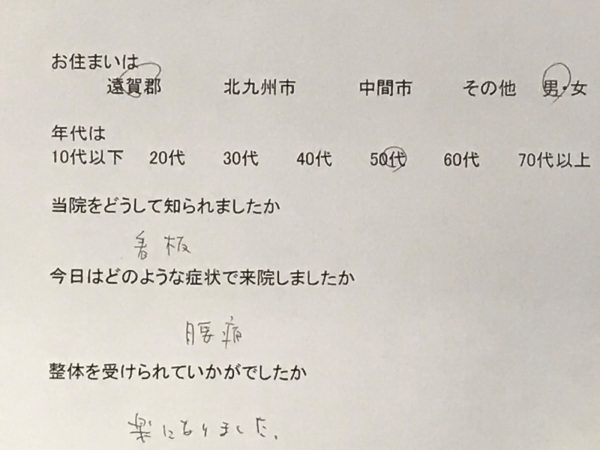 お住まいは
遠賀郡 北九州市 中間市 その他 男・女
年代は
10代以下 20代 30代 40代 50代 60代 70代以上
当院をどうして知られましたか
看板
今日はどのような症状で来院しましたか
腰痛
整体を受けられていかがでしたか
楽になりました。